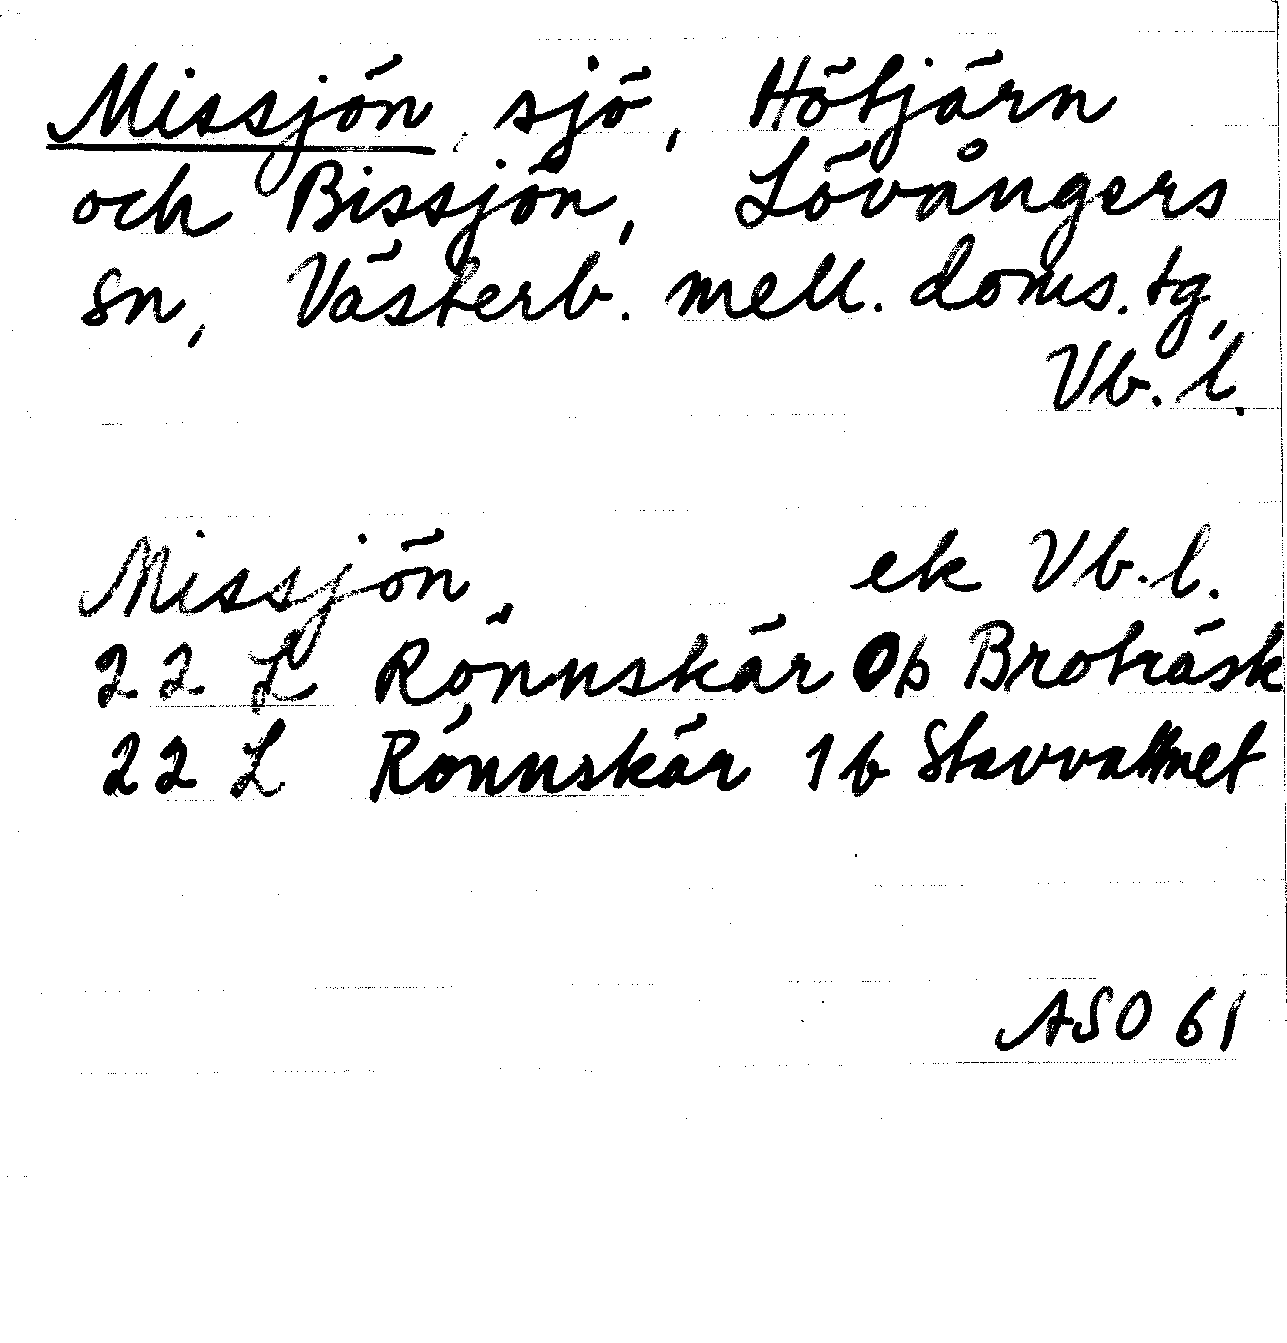 Missjön, sjö, Hötjärn
och Bissjön, Lövångers
sn, Västerb. mell. doms. tg,
Vb. l.
Missjön, ek Vb. l.
22 L Rönnskär 0b Broträsk
22 L Rönnskär 1b Stavvattnet
ASO 61